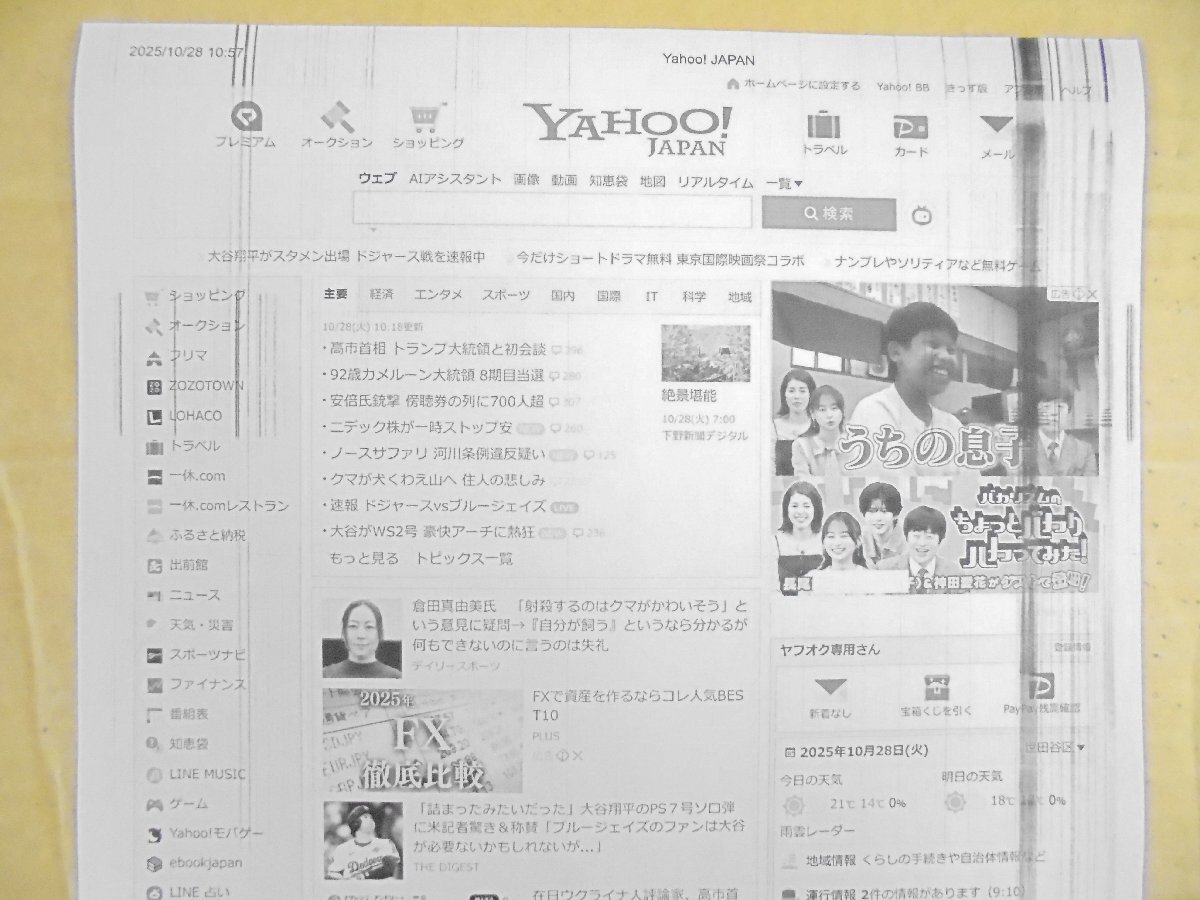 2025/10/28 10:57
Yahoo! JAPAN
ホームページに設定する Yahoo! BB きっず版 ヘルプ
プレミアム オークション ショッピング
YAHOO!
JAPAN
トラベル カード メール
ウェブ AIアシスタント 画像 動画 知恵袋 地図 リアルタイム 一覧▼
検索
大谷翔平がスタメン出場 ドジャース戦を速報中
今だけショートドラマ無料 東京国際映画祭コラボ
ナンプレやソリティアなど無料ゲーム
ショッピング
オークション
フリマ
ZOZOTOWN
LOHACO
トラベル
一休.com
一休.comレストラン
ふるさと納税
出前館
ニュース
天気・災害
スポーツナビ
ファイナンス
番組表
知恵袋
LINE MUSIC
ゲーム
Yahoo!モバゲー
ebookjapan
LINE 占い
主要 経済 エンタメ スポーツ 国内 国際 IT 科学 地域
10/28(火) 10:18更新
・高市首相 トランプ大統領と初会談 296
・92歳カメルーン大統領 8期目当選 280
・安倍氏銃撃 傍聴券の列に700人超 307
・ニデック株が一時ストップ安 NEW 260
・ノースサファリ 河川条例違反疑い NEW 125
・クマが犬くわえ山へ 住人の悲しみ
・速報 ドジャースvsブルージェイズ LIVE
・大谷がWS2号 豪快アーチに熱狂 NEW 236
もっと見る トピックス一覧
絶景堪能
10/28(火) 7:00
下野新聞デジタル
倉田真由美氏 「射殺するのはクマがかわいそう」と
いう意見に疑問→『自分が飼う』というなら分かるが
何もできないのに言うのは失礼
デイリースポーツ
2025年
FX
徹底比較
FXで資産を作るならコレ人気BES
T10
PLUS
広告
「詰まったみたいだった」大谷翔平のPS7号ソロ弾
に米記者驚き&称賛「ブルージェイズのファンは大谷
が必要ないかもしれないが...」
THE DIGEST
Dodgers
在日ウクライナ人評論家、高市首
広告
うちの息子
バカリズムの
ちょっとバカり
バカってみた!
長尾
&神田愛花がゲストで登場!
ヤフオク専用さん 登録情報
新着なし 宝箱くじを引く PayPay残高確認
2025年10月28日(火) 世田谷区▼
今日の天気 明日の天気
21℃ 14℃ 0% 18℃ 0%
雨雲レーダー
地域情報 くらしの手続きや自治体情報など
運行情報 2件の情報があります (9:10)